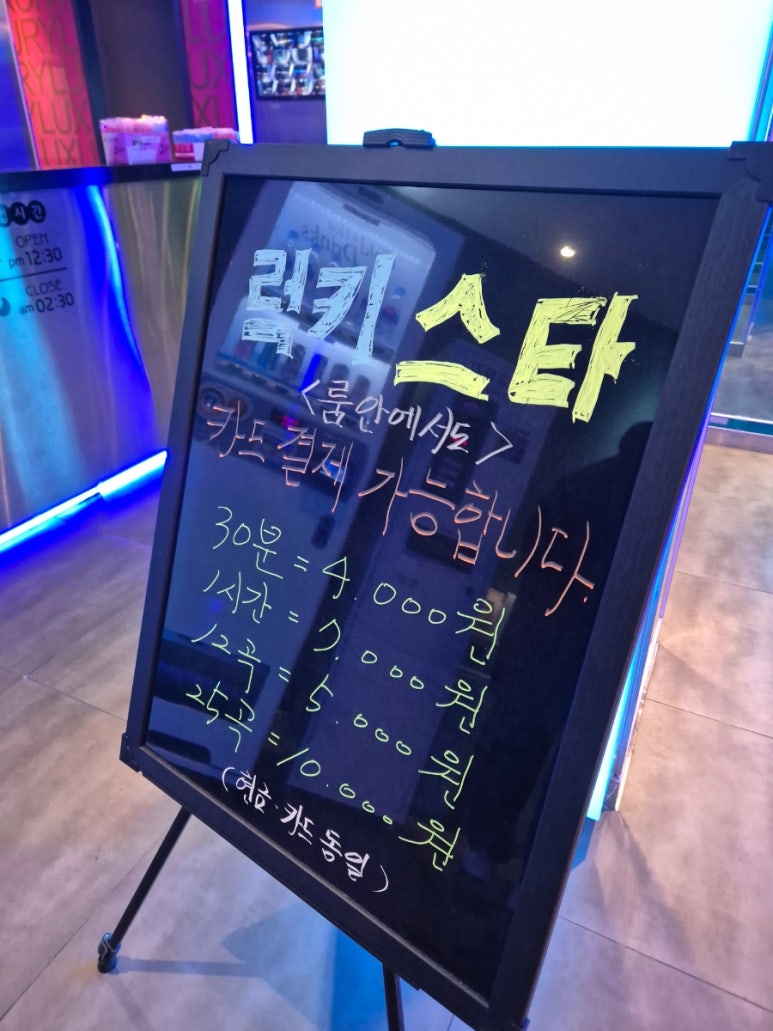 LUX
시간
OPEN
pm 12:30
CLOSE
am 02:30
Drinks
럭키스타
<룸안에서도>
카드결제 가능합니다.
30분 = 4.000원
1시간 = 7.000원
12곡 = 5.000원
25곡 = 10.000원
(현금·카드 동일)